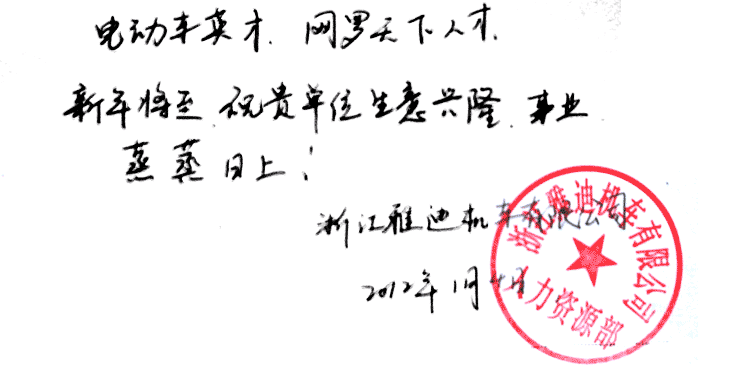 电动车英才,网罗天下人才.
新年将至,祝贵单位生意兴隆,事业
蒸蒸日上!
浙江雅迪机车有限公司
2012年1月4日
浙江雅迪机车有限公司
人力资源部